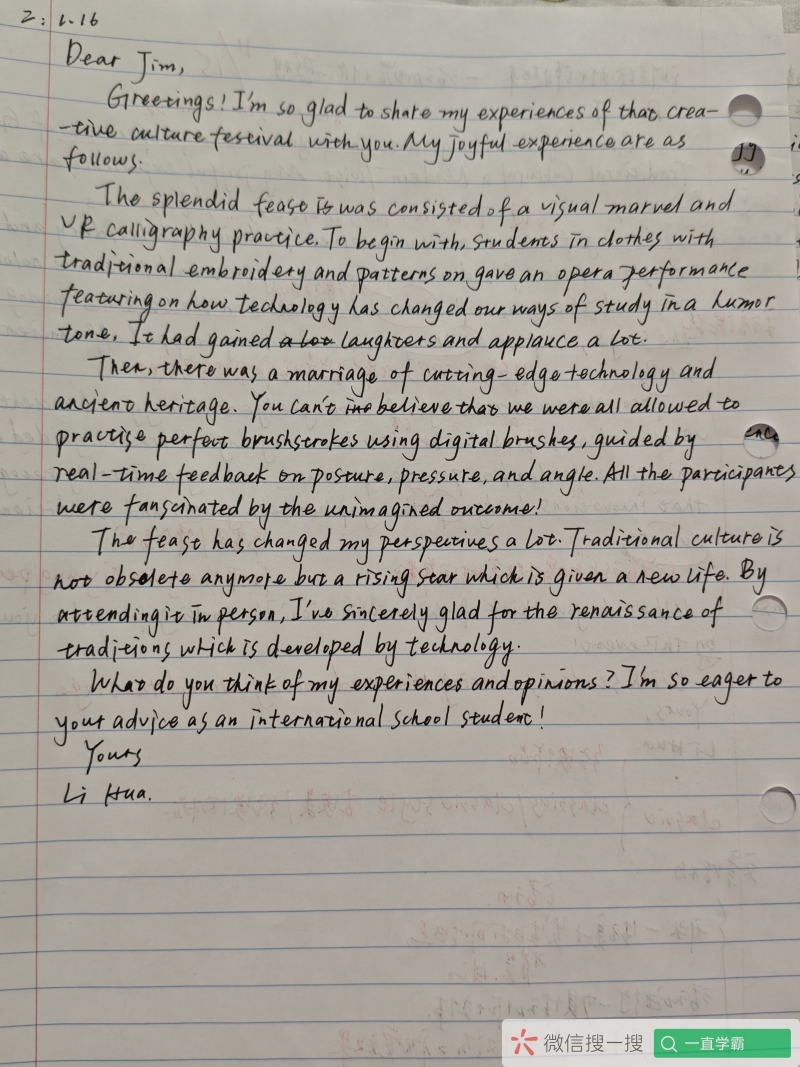 2: 1.16
Dear Jim,
Greetings! I'm so glad to share my experiences of that crea-
-tive culture festival with you. My joyful experience are as
follows.
The splendid feast is was consisted of a visual marvel and
VR calligraphy practice. To begin with, students in clothes with
traditional embroidery and patterns on gave an opera performance
featuring on how technology has changed our ways of study in a humor
tone. It had gained a lot laughters and applauce a lot.
Then, there was a marriage of cutting-edge technology and
ancient heritage. You can't believe that we were all allowed to
practise perfect brushstrokes using digital brushes, guided by
real-time feedback on posture, pressure, and angle. All the participants
were fanscinated by the unimagined outcome!
The feast has changed my perspectives a lot. Traditional culture is
not obselete anymore but a rising star which is given a new life. By
attending it in person, I've sincerely glad for the renaissance of
traditions which is developed by technology.
What do you think of my experiences and opinions? I'm so eager to
your advice as an international school student!
Yours
Li Hua.
微信搜一搜
一直学霸